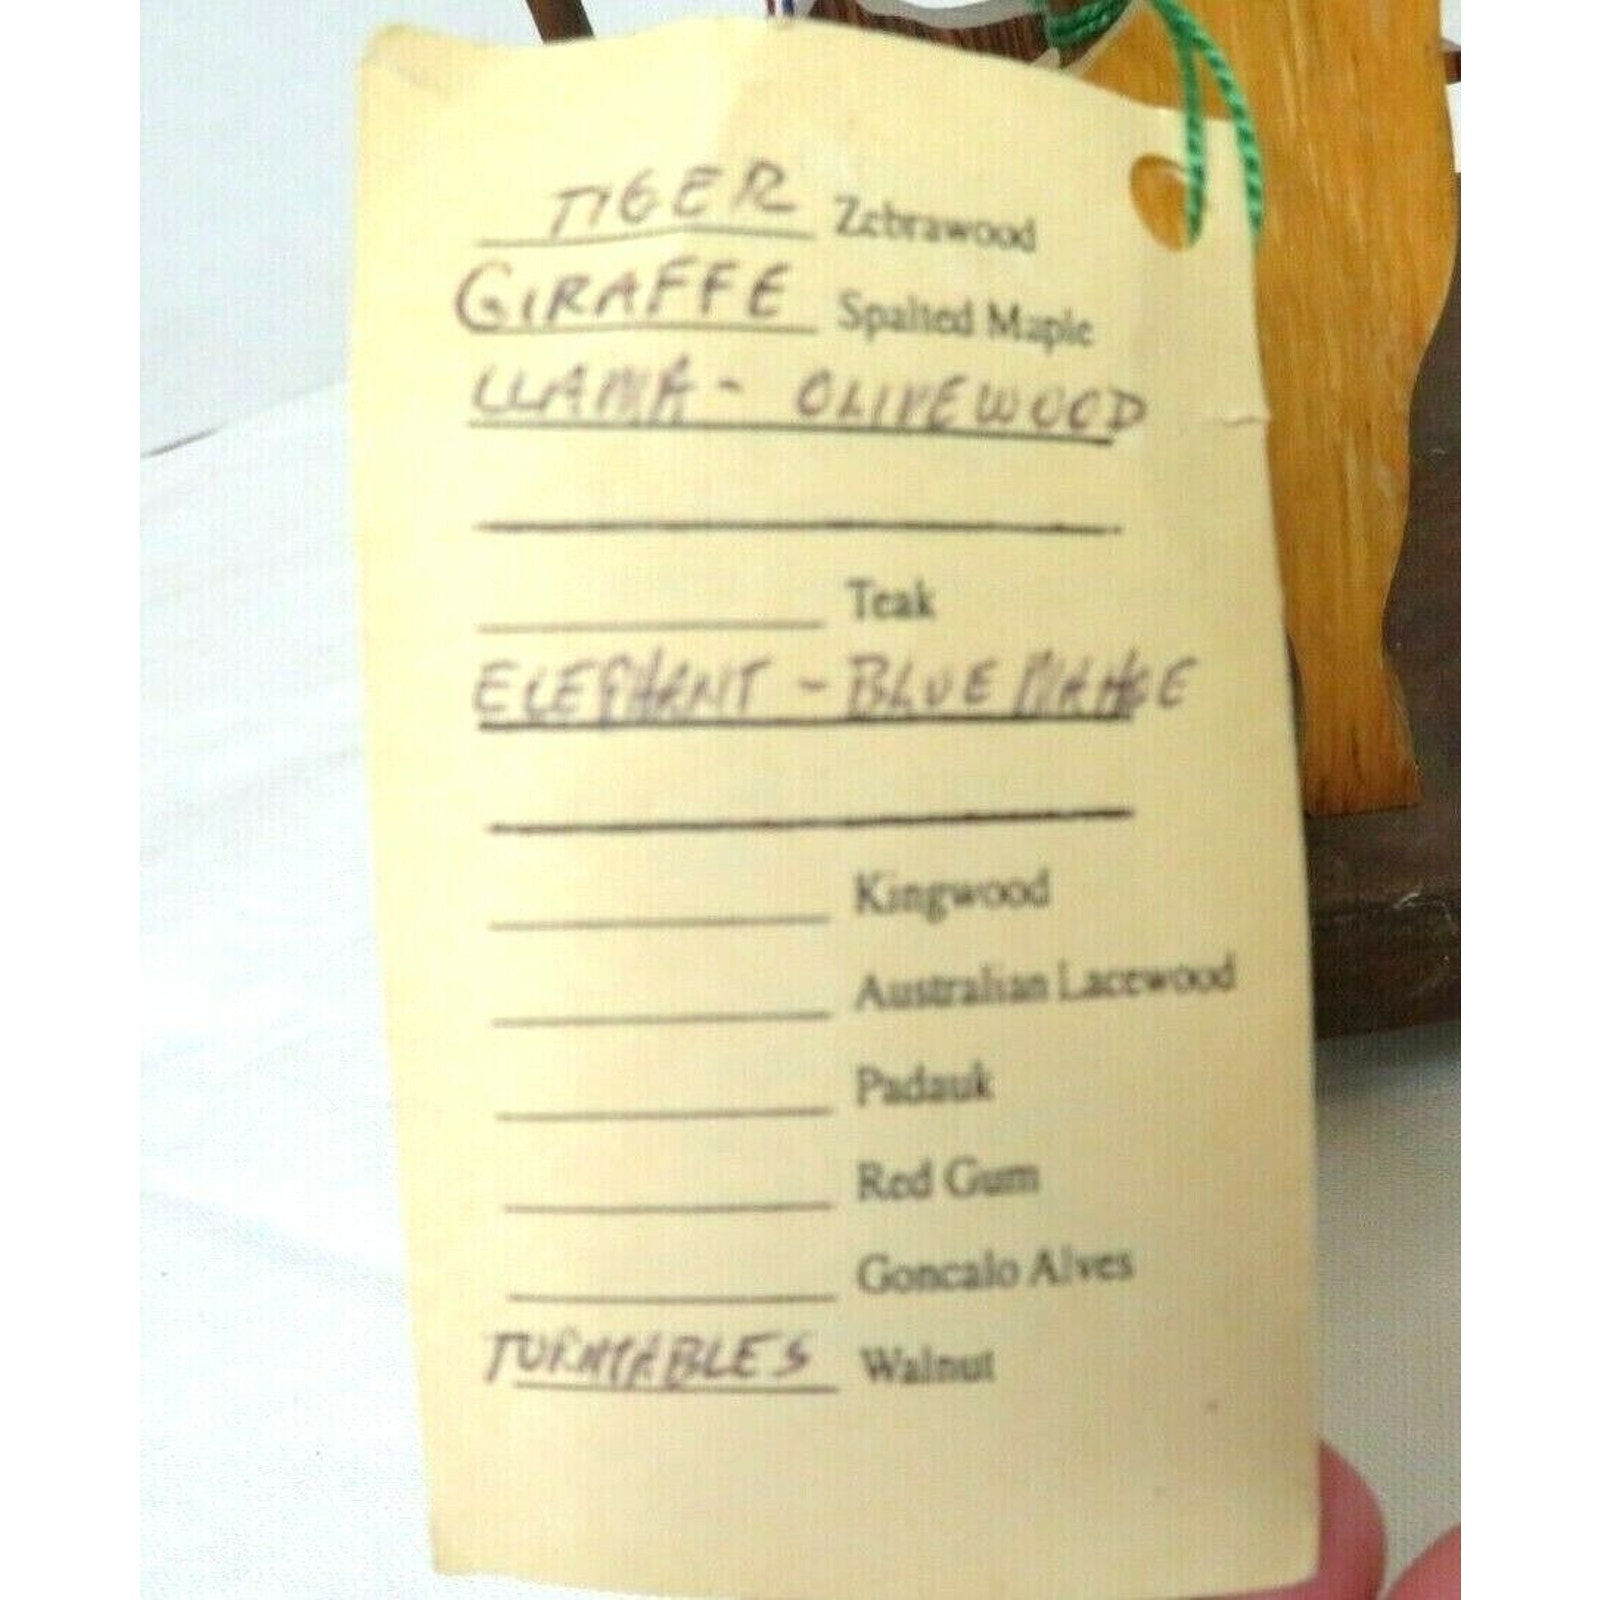 TIGER Zebrawood
GIRAFFE Spalted Maple
LLAMA - OLIVEWOOD
Teak
ELEPHANT - BLUE MAHOE
Kingwood
Australian Lacewood
Padauk
Red Gum
Goncalo Alves
TURNTABLES Walnut